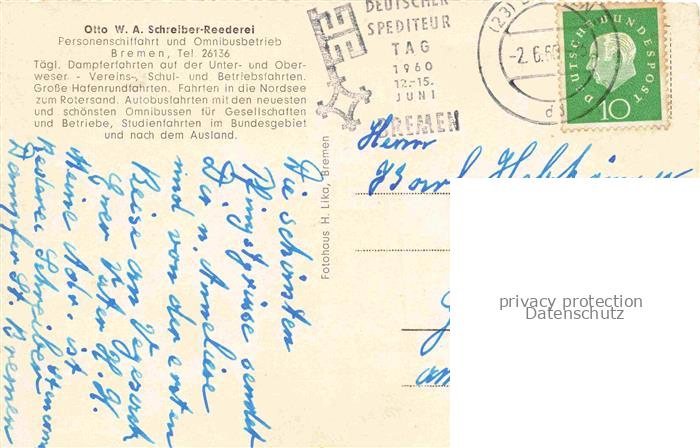 Otto W. A. Schreiber-Reederei
Personenschiffahrt und Omnibusbetrieb
Bremen, Tel 26136
Tägl. Dampferfahrten auf der Unter- und Ober-
weser - Vereins-, Schul- und Betriebsfahrten.
Große Hafenrundfahrten. Fahrten in die Nordsee
zum Rotersand. Autobusfahrten mit den neuesten
und schönsten Omnibussen für Gesellschaften
und Betriebe, Studienfahrten im Bundesgebiet
und nach dem Ausland.
DEUTSCHER
SPEDITEUR
TAG
1960
12.-15.
JUNI
BREMEN
(23)
-2.6.60
DEUTSCHE BUNDESPOST
10
Fotohaus H. Lika, Bremen
Herrn
Karl
Die schönsten
Pfingstgrüsse sendet
Dir u. Anneliese
und von der ersten
Reise an Vegesack
Euer Vater H. H.
Meine Adr. ist
Reederei Schreiber
Dampfer St. Bremen
privacy protection
Datenschutz